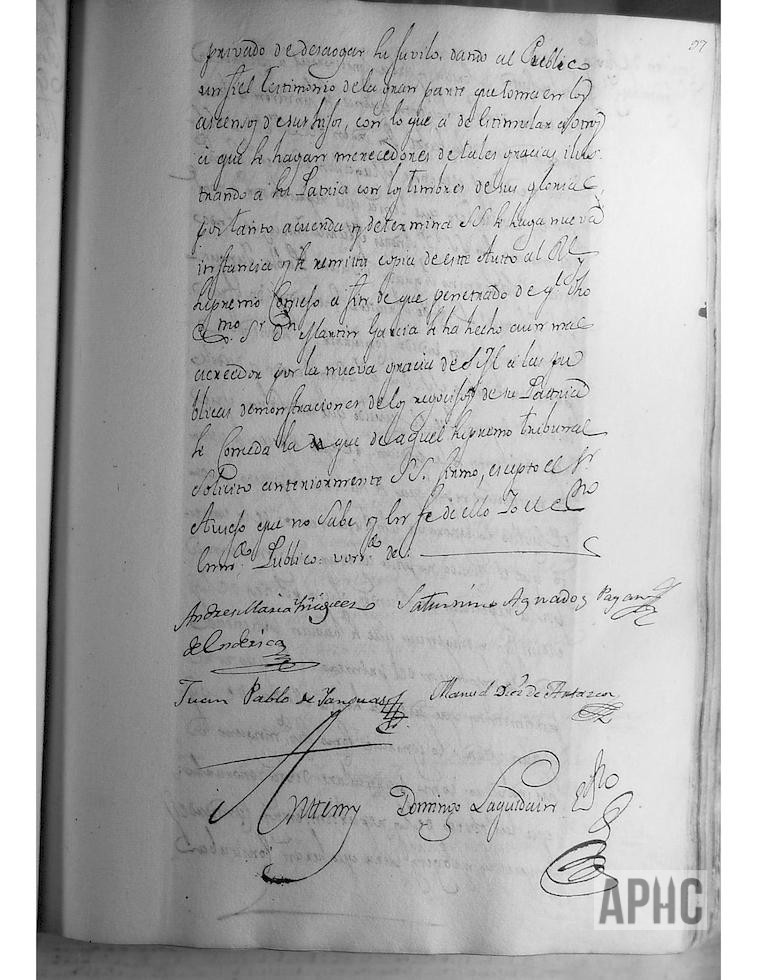 97
privado de desaogar su Juvilo, dando al Publico
un fiel testimonio de la gran parte que toma en los
ascensos de sus hijos, con lo que a de estimular a otros
a que se hagan merecedores de tales gracias ilus-
trando a su Patria con los timbres de sus glorias,
por tanto acuerda y determina SS. se haga nueva
instancia y se remita copia de este Auto al Rl. y
Supremo Consejo a fin de que penetrado de q.e dho
Exmo. Sr. Dn. Martin Garcia se ha hecho aun mas
acreedor por la nueva gracia de S.M. a las pu
blicas demonstraciones de los regocijos de su Patria
se conceda la que de aquel Supremo tribunal
solicito anteriormente SS. firmo, escepto el Sr.
que no sabe y en fe de ello Yo el
Publico
Andres Maria
Saturnino Aguado y Payan
Juan Pablo de Yanguas
Manuel de
Antemy
Domingo Laguidain
APHC